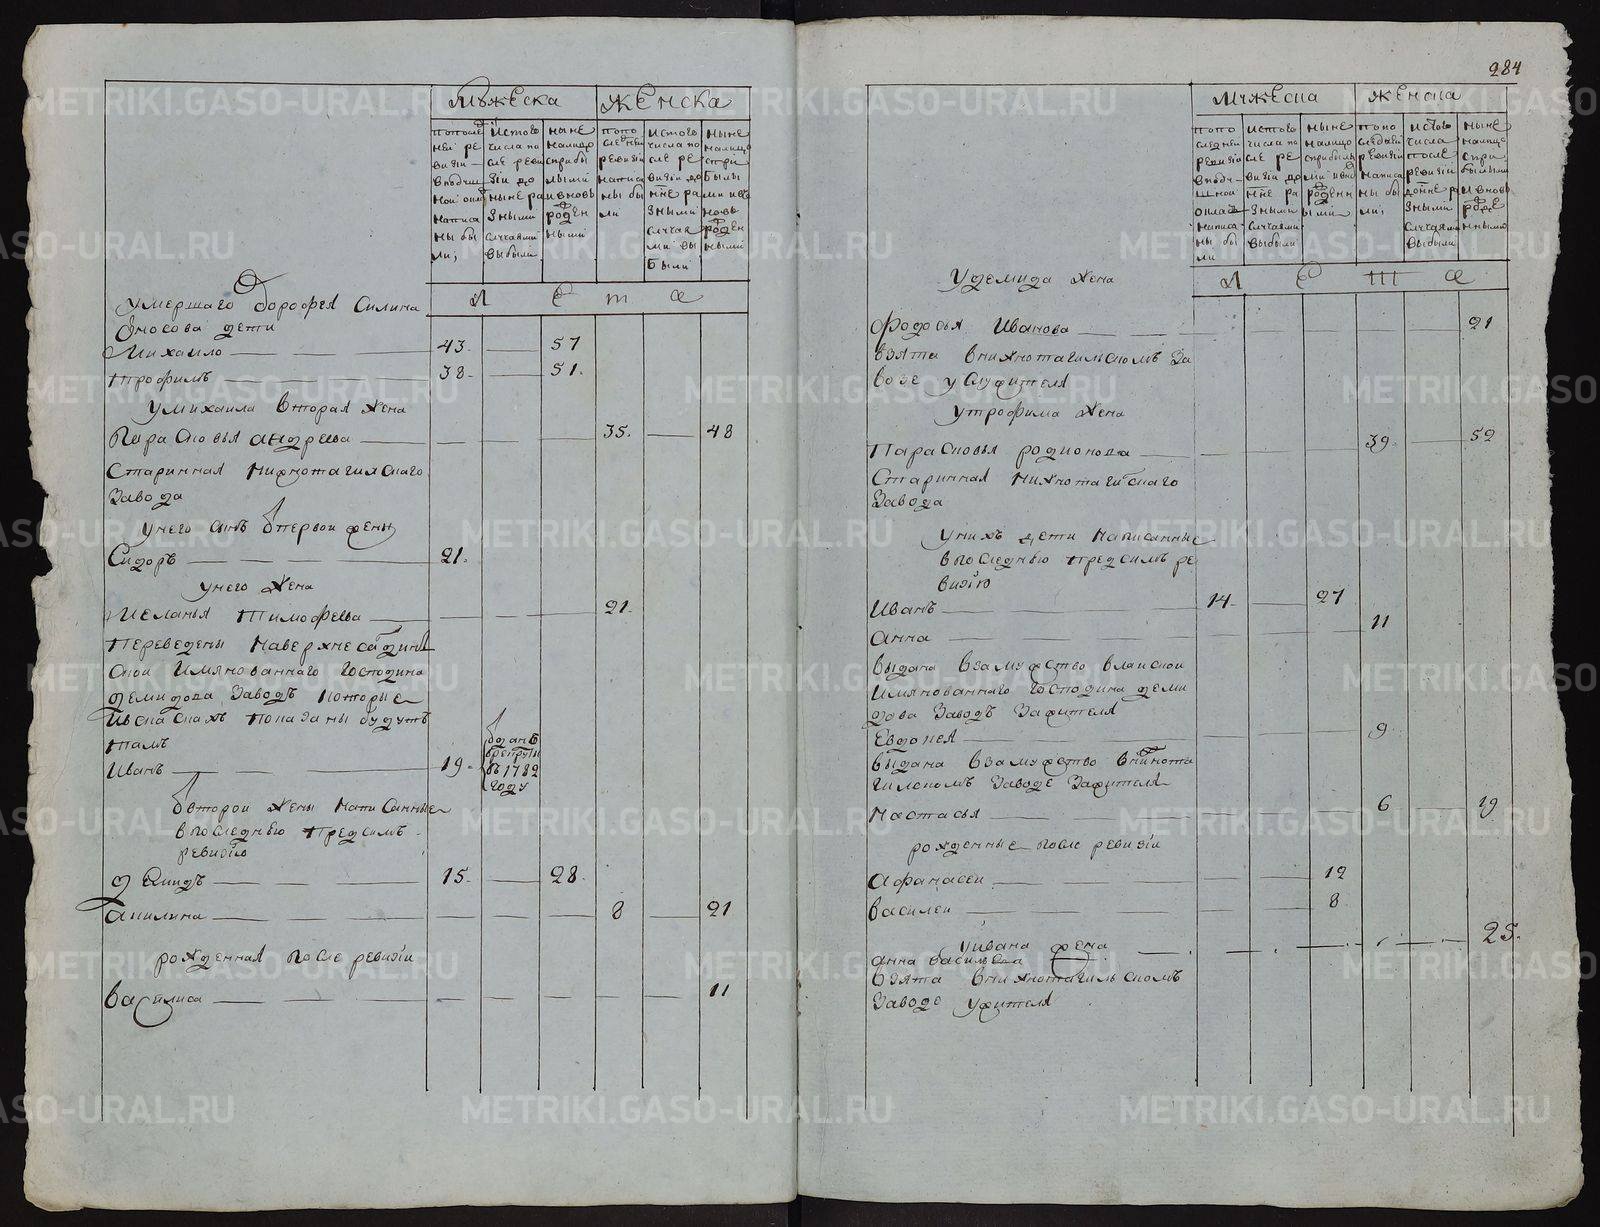 284
Мужеска Женска
попосле дней ре визіи в подуш ной окла написа ны бы ли;
Истого числа по сле реви зіи до ныне ра зными случаями выбыли
ныне налицо с прибы лыми и вновь рожден ными
попо следней ревизіи написа ны бы ли
истого числа по сле ре визіи до ныне ра зными случая ми вы были
ныне налицо спри былы ми и в новь рожден ными
Л Е Т А
умершаго дорофея Силина
Носова дети
Михаило 43. 57
трофимъ 38. 51.
у михаила вторая жена
Парасковья андреева 35. 48
Старинная Нижнотагилскаго
Завода
у него сынъ от первой жены
Сидоръ 21.
у него жена
Меланья Тимофеева 21.
переведены на верхнесалдин
ской имянованнаго господина
демидова заводъ которые
и в сказкахъ показаны будутъ
тамъ
Иванъ 19.
отданъ
в рекруты
въ 1782
году
от второй жены написанные
в последнюю предсимъ
ревизію
демидъ 15. 28.
акилина 8 21
рожденная после ревизіи
василиса 11
Мужеска Женска
попо следней ревизіи в поду шной окладъ написа ны бы ли
истого числа по сле ре визіи до ныне ра зными случаями выбыли
ныне налицо сприбылы ми ивно рожденн ыми
попо следней ревизіи написа ны бы ли;
истого числа после ревизіи доныне ра зными случаями выбыли
ныне налицо спри былыми и вновь рожде нными
Л Е Т А
У демида жена
федосья Иванова 21
взята в нижнотагильскомъ за
воде у служителя
у трофима жена
Парасковья родионова 39. 52
Старинная нижнотагилскаго
Завода
у нихъ дети написанные
в последнюю предсимъ ре
визію
Иванъ 14. 27
анна 11
выдана в замужство в лайской
имянованнаго господина деми
дова заводъ за жителя
Евдокея 9.
выдана в замужство в нижнота
гилскомъ заводе за жителя
настасья 6 19
рожденные после ревизіи
афанасеи 12
василеи 8.
у ивана жена
анна васильева 25.
взята в нижнотагильскомъ
заводе у жителя